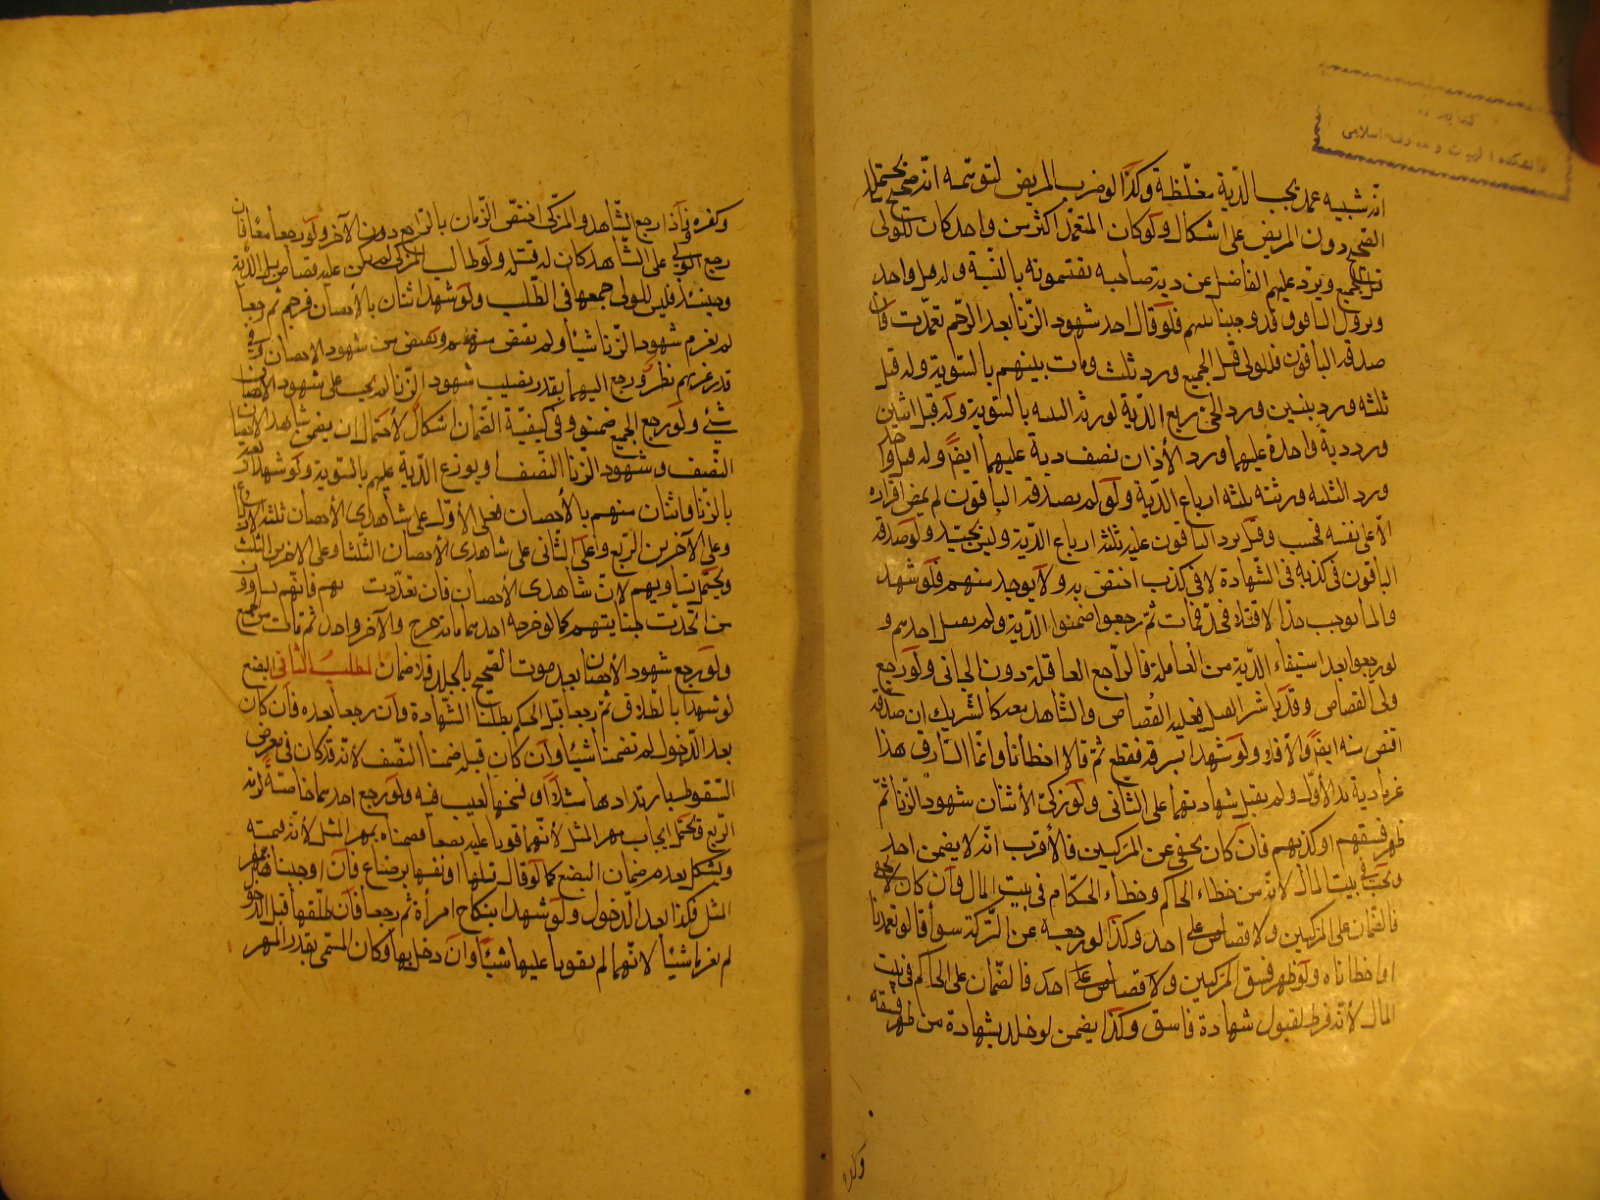 كتابخانه
دانشكده الهيات و معارف اسلامى
انّه شبيه عمد يجب الدّية مغلّظة وكذا لو ضرب المريض لتوهّمه انّه صحيح يحتمل
الصّحيح دون المريض على اشكال ولو كان المتعمّد اكثر من واحد كان للولى
قتل الجميع ويرد عليهم الفاضل عن دية صاحبه يقتسمونه بالنّسبة وله قتل واحد
ويردّ الباقون قدر جنايتهم فلو قال احد شهود الزّنا بعد الرّجم تعمّدت فان
صدقه الباقون فللولى قتل الجميع ورد ثلث ديات بينهم بالسّوية وله قتل
ثلثه ورد ديتين ورد الحىّ ربع الدّية لورثه الثلثه بالسّوية وله قتل اثنين
ورد دية واحدة عليهما ورد الآخران نصف دية عليهما ايضًا وله قتل واحد
ورد الثلثه ورثته ثلثه ارباع الدّية ولو لم يصدقه الباقون لم يمض اقراره
الّا على نفسه فحسب وقيل يرد الباقون عليه ثلثه ارباع الدّية وليس بجيّد ولو صدقه
الباقون فى كذبه فى الشّهادة لا فى كذبهم اختصّ به ولا يوخذ منهم فلو شهد
والما يوجب حدّا لا قتلا فحدّ فمات ثمّ رجعوا ضمنوا الدّية ولم يقتل احدهم و
لو رجعوا بعد استيفاء الدّية من العاملة فالرّاجع العاقلة دون الجانى ولو رجع
ولى القصاص وقد باشر القتل فعليه القصاص والشّاهد معه كالشّريك ان صدّقه
اقتص منه ايضًا والّا فلا ولو شهدا بسرقه فقطع ثم قالا اخطأنا وانّما السّارق هذا
غرما دية يد الأوّل ولم يقبل شهادتهما على الثّانى ولو زكىّ الأثنان شهود الزّنا ثمّ
ظهر فسقهم او كذبهم فان كان يخفى عن المزكيين فالأقرب انّه لا يضمن احد
وتجب فى بيت المال لانّه من خطاء الحاكم وخطاء الحكّام فى بيت المال وان كان لا يخفى
فالضّمان على المزكيين ولا قصاص على احد وكذا لو رجعا عن التّزكية سوأ قالا تعمّدنا
او اخطاناه ولو ظهر فسق المزكيين ولا قصاص على احد فالضّمان على الحاكم فى بيت
المال لأنّه فرط لقبول شهادة فاسق وكذا يضمن لو جلد بشهادة من ظهر فسقه
وكفره
وكفره فاذا رجع الشّاهد والمزكّى اختصّ الضّمان بالرّاجع دون الآخر ولو رجعا معًا فان
رجع الولى على الشّاهد كان له قتله ولو طالب المزكى لم يكن عليه قصاص بل الدّية
وحينئذ فليس للولى جمعهما فى الطّلب ولو شهد اثنان بالأحصان فرجم ثم رجعا
لم يغرم شهود الزّنا شيأ ولم يقتص منهم ويقتص من شهود الاحصان وفى
قدر غرمهم نظر ورجع اليهما بقدر نصيب شهود الزّنا لم يجب على شهود الأحصان
شئ ولو رجع الجميع ضمنوا وفى كيفيّة الضّمان اشكال لأحتمال ان يضمن شاهدا الاحصان
النّصف وشهود الزّنا النّصف او يوزع الدّية عليهم بالسّوية ولو شهد اربعة
بالزّنا واثنان منهم بالأحصان فعلى الأوّل على شاهدى الأحصان ثلثه الارباع
وعلى الآخرين الرّبع وعلى الثّانى على شاهدى الأحصان الثّلثا وعلى الاخرين الثّلث
ويحتمل تساويهم لانّ شاهدى الأحصان فان تعدّدت جنايتهم فانّهم يساوون
من اتّحدّت جنايتهم كما لو جرحه احدهما مائة جرح والآخر واحد ثم مات من الجميع
ولو رجع شهود الأحصان بعد موت الصّحيح بالجلد فلا ضمان المطلب الثّانى البضع
لو شهدا بالطّلاق ثم رجعا قبل الحكم بطلت الشّهادة وان رجعا بعده فان كان
بعد الدّخول لم تضمنا شيأ وان كان قبله ضمنا النّصف لانّه قد كان فى معرض
السّقوط بارتدادها مثلا او فسخها لعيب فيه ولو رجع احدهما خاصّة لزمه
الرّبع ويحتمل ايجاب مهر المثل لأنّهما فوتا عليه بضعا فضمناه بمهر المثل لأنّه قيمته
ويشكل بعدم ضمان البضع كما لو قال قتلها او نفسها برضاع فان اوجبنا هنا مهر
المثل فكذا بعد الّدخول ولو شهدا بنكاح امرأة ثم رجعا فان طلّقها قبل الّدخو
لم يغرما شيأ لانّهما لم يفوتا عليها شيئًا وان دخل بها وكان المسّمى بقدر المهر